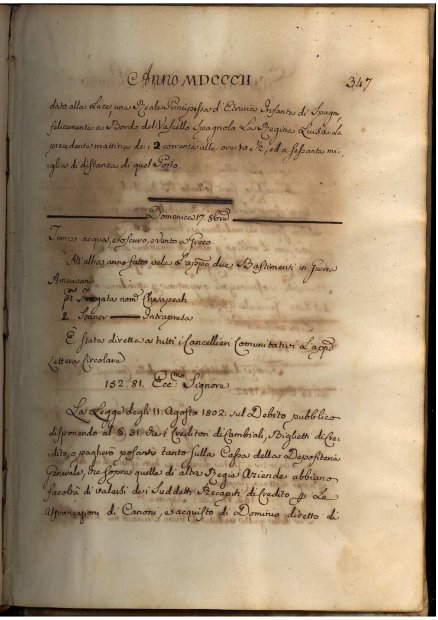 Anno MDCCCII
347
dato alla Luce una Reale Principessa d'Etruria Infanta di Spagn,
felicemente a Bordo del Vascello Spagnolo La Regina Luisa la
precedente mattina de i 2 corrente alle ore 10 e ½, ed a sessanta mi„
glia di distanza di quel Porto.
Domenica 17. 8bre
Tempo acqua, e oscuro, e vento a Greco
All'alba anno fatto vela L'appo due Bastimenti in Guerra
Americani
Fregata nom. Chesapeah
2. Scuner Intraprosa
E stata diretta a tutti i Cancellieri Comunitativi L'appo
Lettera Circolare
152. 81. Ecc:mo Signore
La Legge degli 11. Agosto 1802. sul Debito pubblico
disponendo al §. 31. che i Creditori di Cambiali, Biglietti di Cre„
dito, o pagherò posanti tanto sulla Cassa della Depositeria
Generale, che sopra quelle di altre Regie Aziende abbiano
facoltà di valersi dei Suddetti Recapiti di Credito p. Le
Affrancazioni di Canoni, e acquisto di Dominio diretto di